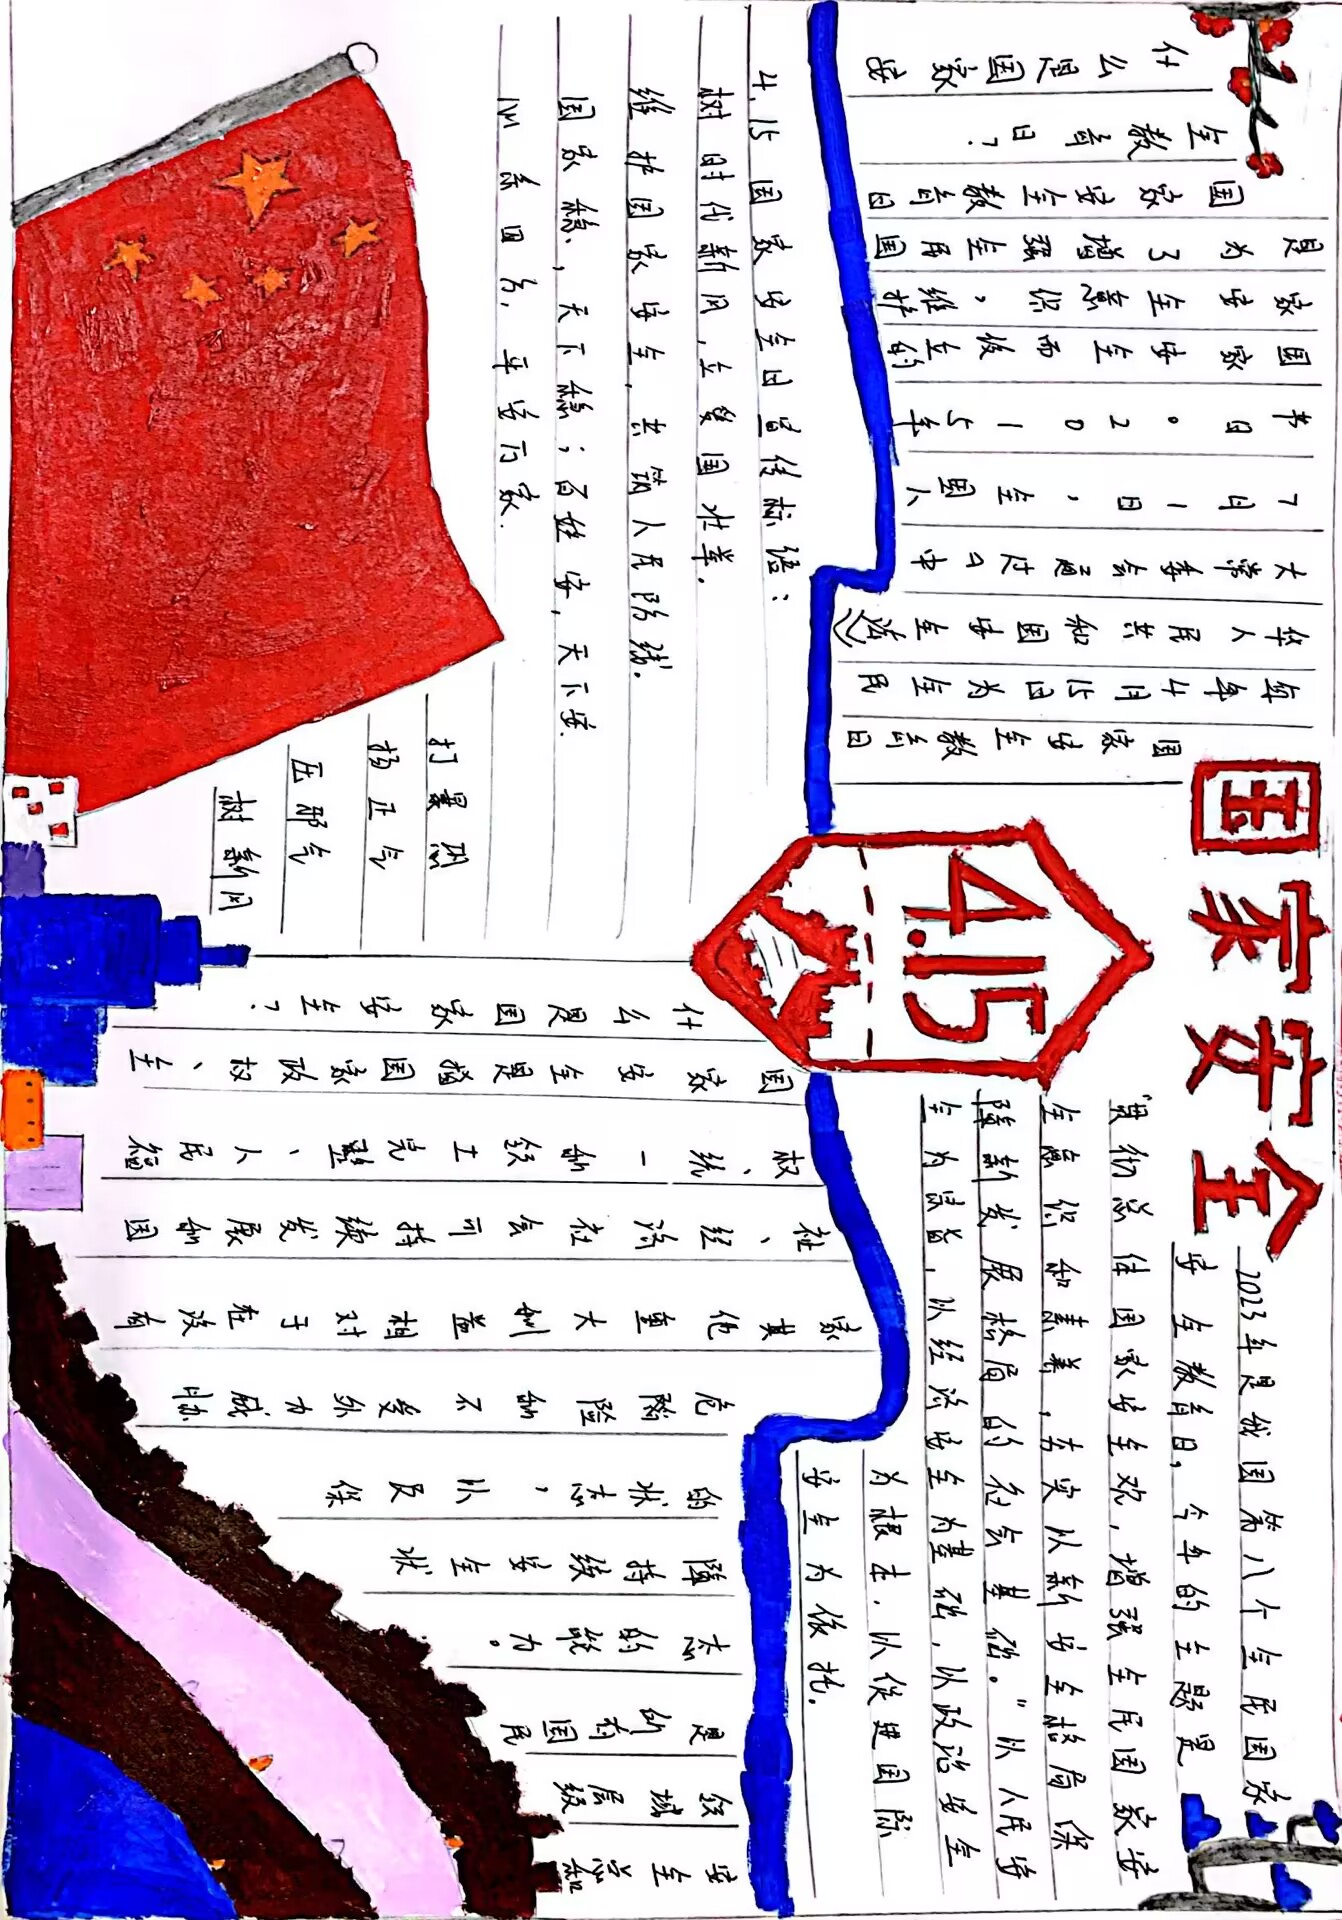 国家安全
4.15
什么是国家安
全教育日?
国家安全教育日
是为了增强全民国
家安全意识,维护
国家安全而设立的
节日。2015年
7月1日,全国人
大常委会通过了中
华人民共和国安全法》
每年4月15日为全民
国家安全教育日
2023年是我国第八个全民国家
安全教育日,今年的主题是
“贯彻总体国家安全观,增强全民国家安
全意识和素养,夯实以新安全格局保
障新发展格局的社会基础。”以人民安
全为宗旨,以经济安全为基础,以政治安全
为根本,以促进国际
安全为依托。
4.15国家安全日宣传标语:
树时代新风,立爱国壮举.
维护国家安全,共筑人民防线.
国家稳,天下稳;百姓安,天下安.
心系四方,平安万家.
打黑恶
扬正气
压邪气
树新风
什么是国家安全?
国家安全是指国家政权、主
权、统一和领土完整、人民福
祉、经济社会可持续发展和国
家其他重大利益相对于在没有
危险和不受外力威胁
的状态,以及保
障持续安全状
态的能力。
是所有国民
领域层级
安全总和